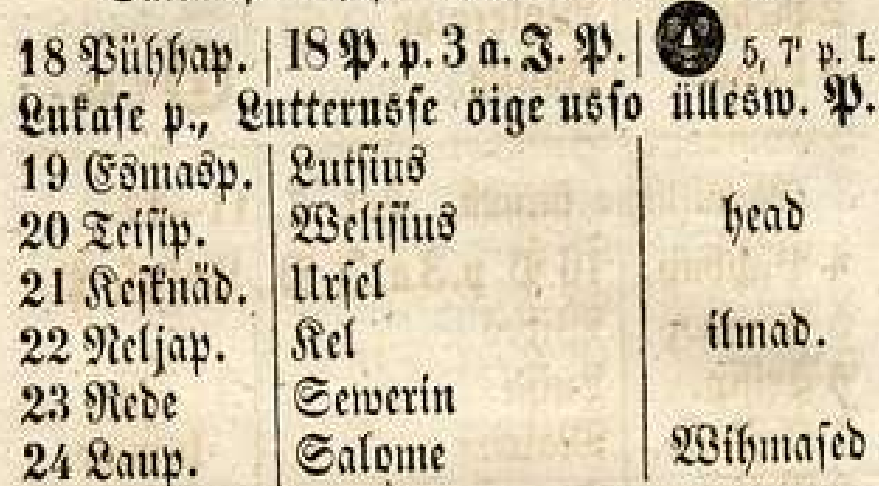 18 Pühhap. | 18 P. p. 3 a. J. P. | 5, 7' p. l.
Lukase p., Lutterusse öige usso üllesw. P.
19 Esmasp. Lutsius
20 Teisip. Welisius head
21 Kesknäd. Ursel
22 Neljap. Kel ilmad.
23 Rede Sewerin
24 Laup. Salome Wihmased